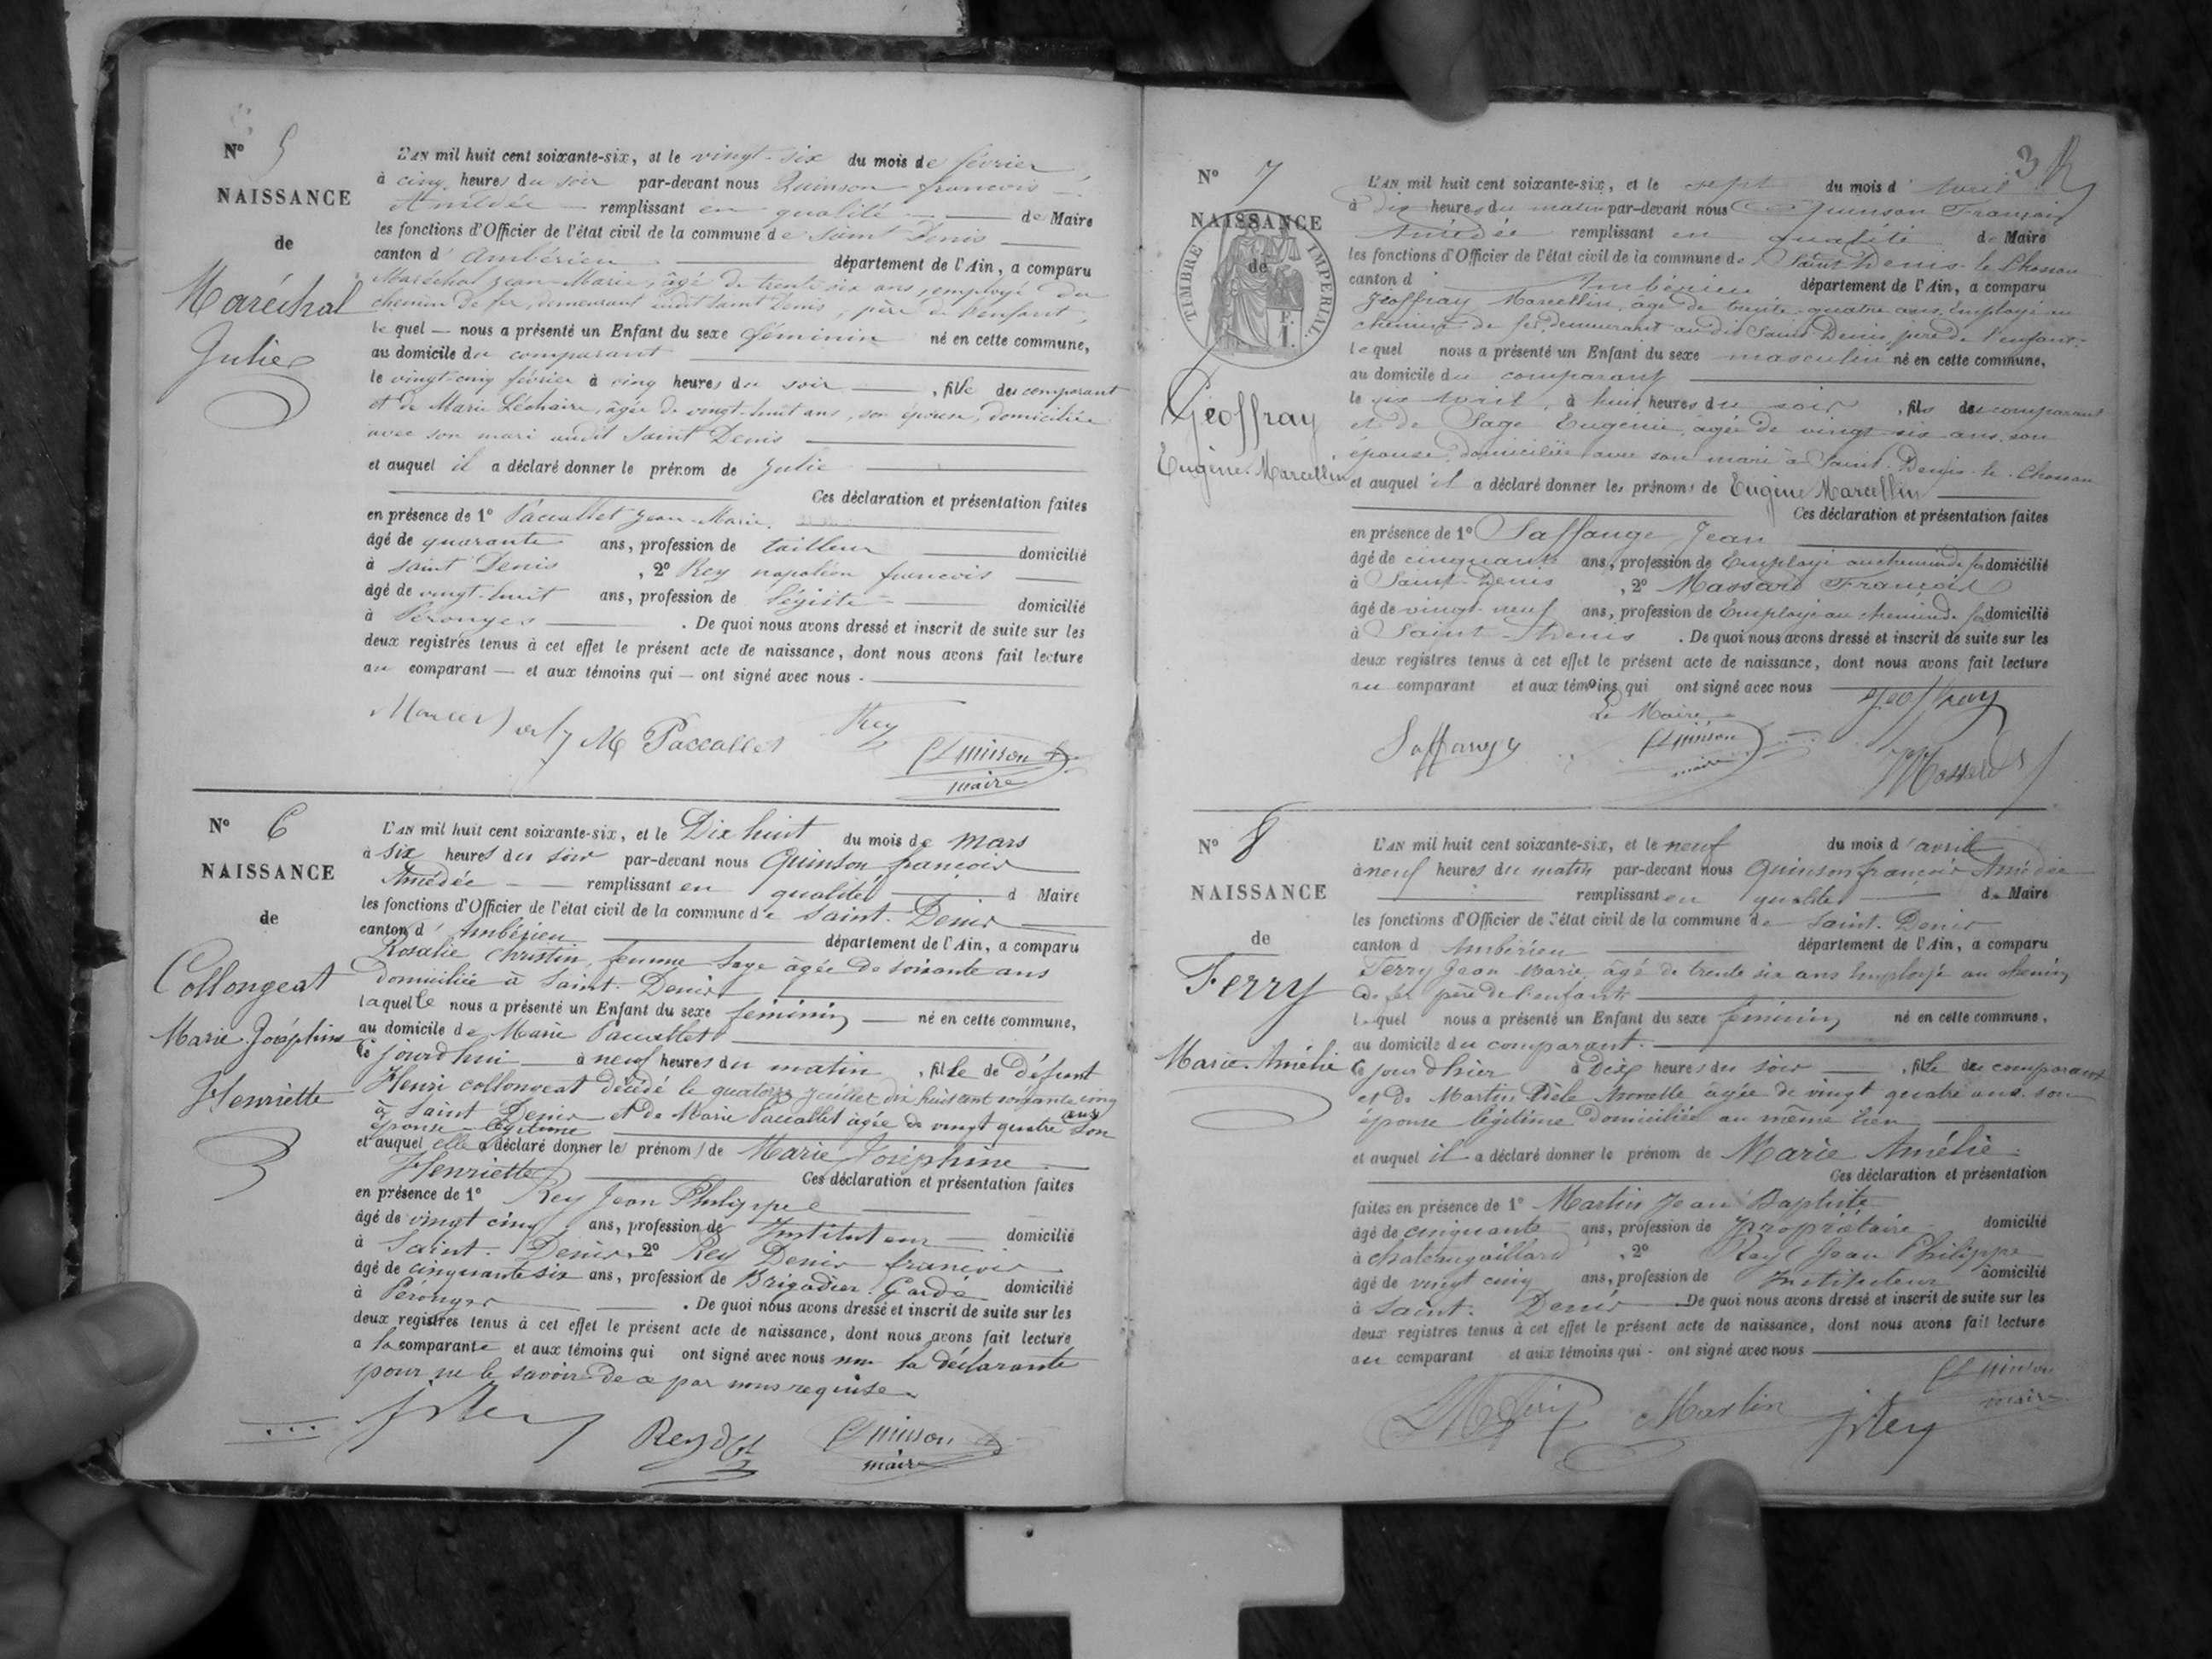 N° 5
NAISSANCE
de
Maréchal
Julie
L'AN mil huit cent soixante-six, et le vingt-six du mois de février
à cinq heures du soir par-devant nous Quinson françois
Amédée remplissant en qualité de Maire
les fonctions d'Officier de l'état civil de la commune de Saint Denis
canton d'Ambérieu département de l'Ain, a comparu
Maréchal Jean-Marie, âgé de trente six ans, employé du
chemin de fer, demeurant audit Saint Denis, père de l'enfant,
lequel nous a présenté un Enfant du sexe féminin né en cette commune,
au domicile du comparant
le vingt-cinq février à cinq heures du soir, fille du comparant
et de Marie Léchaire, âgée de vingt-huit ans, son épouse, domiciliée
avec son mari audit Saint Denis
et auquel il a déclaré donner le prénom de Julie
Ces déclaration et présentation faites
en présence de 1° Paccallet Jean-Marie,
âgé de quarante ans, profession de tailleur domicilié
à Saint Denis, 2° Rey napoléon francois
âgé de vingt-huit ans, profession de Légiste domicilié
à Pérouges. De quoi nous avons dressé et inscrit de suite sur les
deux registres tenus à cet effet le présent acte de naissance, dont nous avons fait lecture
au comparant — et aux témoins qui — ont signé avec nous.
J M Paccallet Rey
Quinson
maire
N° 6
NAISSANCE
de
Collongeat
Marie Joséphine
Henriette
L'AN mil huit cent soixante-six, et le Dix huit du mois de mars
à six heures du soir par-devant nous Quinson, françois
Amédée remplissant en qualité d Maire
les fonctions d'Officier de l'état civil de la commune de Saint. Denis
canton d'Ambérieu département de l'Ain, a comparu
Rosalie Christin, femme Sage âgée de soixante ans
domiciliée à Saint. Denis
laquelle nous a présenté un Enfant du sexe féminin né en cette commune,
au domicile de Marie Paccallet
Ce jourd'hui à neuf heures du matin, fille de Défunt
Henri collongeat décédé le quatorze Juillet dix huit cent soixante cinq
à Saint Denis et de Marie Paccallet âgée de vingt quatre ans son
épouse légitime
et auquel elle a déclaré donner les prénoms de Marie Joséphine
Henriette Ces déclaration et présentation faites
en présence de 1° Rey Jean Philippe
âgé de vingt cinq ans, profession de Instituteur domicilié
à Saint. Denis. 2° Rey Denis francois
âgé de cinquante six ans, profession de Brigadier. Garde domicilié
à Pérouges. De quoi nous avons dressé et inscrit de suite sur les
deux registres tenus à cet effet le présent acte de naissance, dont nous avons fait lecture
a la comparante et aux témoins qui ont signé avec nous non la déclarante
pour ne le savoir de ce par nous requise
Rey
Quinson
maire
3
N° 7
NAISSANCE
de
TIMBRE IMPERIAL
Geoffray
Eugène. Marcellin
L'AN mil huit cent soixante-six, et le sept du mois d'Avril
à dix heures du matin par-devant nous Quinson François
Amédée remplissant en qualité de Maire
les fonctions d'Officier de l'état civil de la commune de Saint Denis-le Chosson
canton d Ambérieu département de l'Ain, a comparu
Geoffray Marcellin, âgé de trente-quatre ans, Employé au
chemin de fer, demeurant au dit Saint Denis père de l'enfant.
lequel nous a présenté un Enfant du sexe masculin né en cette commune,
au domicile du comparant
le six Avril, à huit heures du soir, fils du comparant
et de Sage Eugénie, âgée de vingt-six ans, son
épouse domiciliée avec son mari à Saint-Denis-le-Chosson
et auquel il a déclaré donner les prénoms de Eugène Marcellin
Ces déclaration et présentation faites
en présence de 1° Saffange Jean
âgé de cinquante ans, profession de Employé au chemin de fer domicilié
à Saint-Denis, 2° Massard François
âgé de vingt-neuf ans, profession de Employé au chemin de fer domicilié
à Saint-Denis. De quoi nous avons dressé et inscrit de suite sur les
deux registres tenus à cet effet le présent acte de naissance, dont nous avons fait lecture
au comparant et aux témoins qui ont signé avec nous
Geoffray
Le Maire
Quinson
maire
N° 8
NAISSANCE
de
Ferry
Marie-Amélie
L'AN mil huit cent soixante-six, et le neuf du mois d'avril
à neuf heures du matin par-devant nous Quinson françois Amédée
remplissant en qualité de Maire
les fonctions d'Officier de l'état civil de la commune de Saint. Denis
canton d Ambérieu département de l'Ain, a comparu
Ferry Jean Marie, âgé de trente six ans Employé au chemin
de fer père de l'enfant
lequel nous a présenté un Enfant du sexe féminin né en cette commune,
au domicile du comparant.
Ce jour d'hier à Dix heures du soir, fille du comparant
et de Martin Adèle âgée de vingt quatre ans son
épouse légitime Domiciliée au même lieu
et auquel il a déclaré donner le prénom de Marie Amélie.
Ces déclaration et présentation
faites en présence de 1° Martin Jean Baptiste
âgé de cinquante ans, profession de propriétaire domicilié
à chateaugaillard, 2° Rey Jean Philippe
âgé de vingt cinq ans, profession de Instituteur domicilié
à Saint. Denis De quoi nous avons dressé et inscrit de suite sur les
deux registres tenus à cet effet le présent acte de naissance, dont nous avons fait lecture
au comparant et aux témoins qui ont signé avec nous
Quinson
maire
Martin JRey